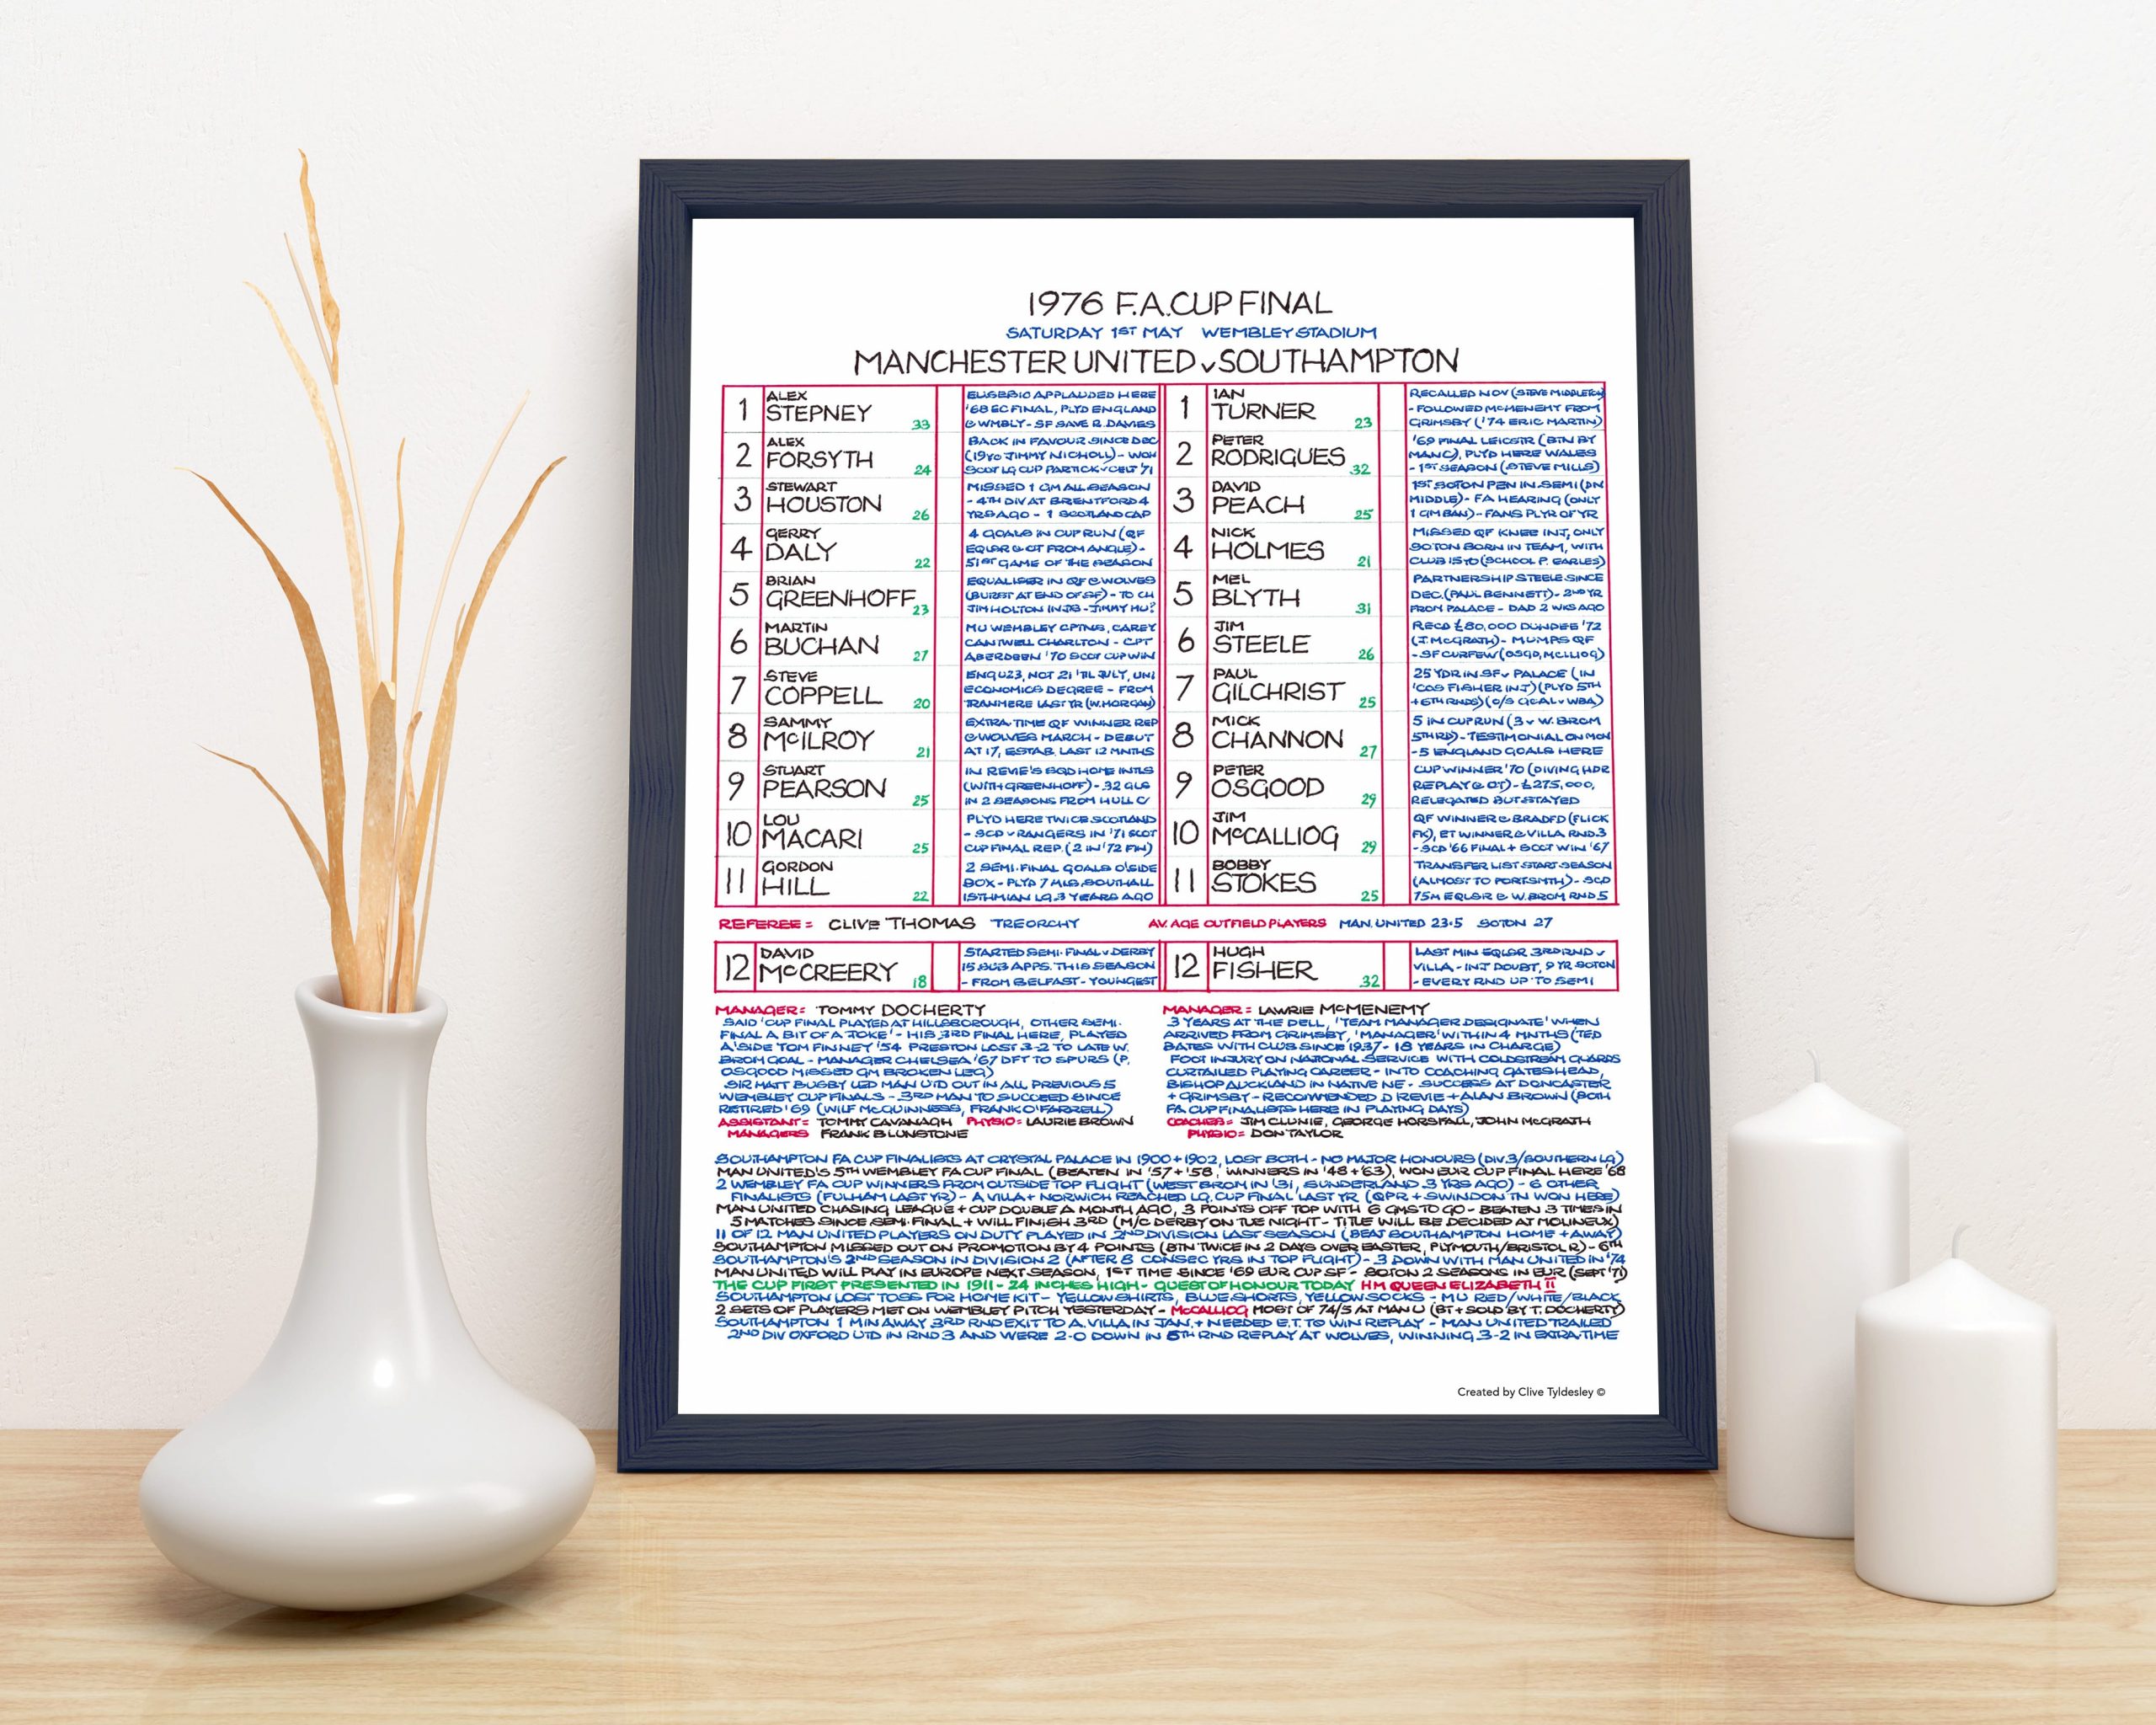 1976 F.A. CUP FINAL
SATURDAY 1ST MAY WEMBLEY STADIUM
MANCHESTER UNITED v SOUTHAMPTON
1 ALEX STEPNEY 33
EUSEBIO APPLAUDED HERE
'68 EC FINAL, PLYD ENGLAND
@ WMBLY - SF SAVE R. DAVIES
2 ALEX FORSYTH 24
BACK IN FAVOUR SINCE DEC
(19yo JIMMY NICHOLL) - WON
SCOT LG CUP PARTICK v CELT '71
3 STEWART HOUSTON 26
MISSED 1 GM ALL SEASON
- 4TH DIV AT BRENTFORD 4
YRS AGO - 1 SCOTLAND CAP
4 GERRY DALY 22
4 GOALS IN CUP RUN (QF
EQLSR @ OT FROM ANGLE) -
51ST GAME OF THE SEASON
5 BRIAN GREENHOFF 23
EQUALISER IN QF @ WOLVES
(BURST AT END OF SF) - TO CH
JIM HOLTON INJS - JIMMY MU?
6 MARTIN BUCHAN 27
MU WEMBLEY CPTNS, CAREY
CANTWELL CHARLTON - CPT
ABERDEEN '70 SCOT CUP WIN
7 STEVE COPPELL 20
ENG U23, NOT 21 'TIL JULY, UNI
ECONOMICS DEGREE - FROM
TRANMERE LAST YR (W. MORGAN)
8 SAMMY McILROY 21
EXTRA-TIME QF WINNER REP
@ WOLVES MARCH - DEBUT
AT 17, ESTAB. LAST 12 MNTHS
9 STUART PEARSON 25
IN REVIE'S SQD HOME INTLS
(WITH GREENHOFF) - 32 GLS
IN 2 SEASONS FROM HULL C/
10 LOU MACARI 25
PLYD HERE TWICE SCOTLAND
- SCD v RANGERS IN '71 SCOT
CUP FINAL REP. (2 IN '72 FIN)
11 GORDON HILL 22
2 SEMI-FINAL GOALS O'SIDE
BOX - PLYD 7 MLS, SOUTHALL
ISTHMIAN LG 3 YEARS AGO
1 IAN TURNER 23
RECALLED NOV (STEVE MIDDLETON)
- FOLLOWED McMENEMY FROM
GRIMSBY ('74 ERIC MARTIN)
2 PETER RODRIGUES 32
'69 FINAL LEICSTR (BTN BY
MANC), PLYD HERE WALES
- 1ST SEASON (STEVE MILLS)
3 DAVID PEACH 25
1ST SOTON PEN IN SEMI (DN
MIDDLE) - FA HEARING (ONLY
1 GM BAN) - FANS PLYR OF YR
4 NICK HOLMES 21
MISSED QF KNEE INJ, ONLY
SOTON BORN IN TEAM, WITH
CLUB 15YO (SCHOOL P. EARLES)
5 MEL BLYTH 31
PARTNERSHIP STEELE SINCE
DEC. (PAUL BENNETT) - 2ND YR
FROM PALACE - DAD 2 WKS AGO
6 JIM STEELE 26
RECD £80,000 DUNDEE '72
(J. McGRATH) - MUMPS QF
- SF CURFEW (OSGD, McLLIOG)
7 PAUL GILCHRIST 25
25 YDR IN SF v PALACE (IN
'COS FISHER INJ) (PLYD 5TH
+ 6TH RNDS) (O/S GOAL v WBA)
8 MICK CHANNON 27
5 IN CUP RUN (3 v W. BROM
5TH RD) - TESTIMONIAL ON MON
- 5 ENGLAND GOALS HERE
9 PETER OSGOOD 29
CUP WINNER '70 (DIVING HDR
REPLAY @ OT) - £275,000,
RELEGATED BUT STAYED
10 JIM McCALLIOG 29
QF WINNER @ BRADFD (FLICK
FK), ET WINNER @ VILLA RND.3
- SCD '66 FINAL + SCOT WIN '67
11 BOBBY STOKES 25
TRANSFER LIST START SEASON
(ALMOST TO PORTSMTH) - SCD
75M EQLSR @ W. BROM RND 5
REFEREE = CLIVE THOMAS TREORCHY AV. AGE OUTFIELD PLAYERS MAN. UNITED 23·5 SOTON 27
12 DAVID McCREERY 18
STARTED SEMI-FINAL v DERBY
15 SUB APPS. THIS SEASON
- FROM BELFAST - YOUNGEST
12 HUGH FISHER 32
LAST MIN EQLSR 3RD RND v
VILLA - INJ DOUBT, 9 YR SOTON
- EVERY RND UP TO SEMI
MANAGER = TOMMY DOCHERTY
SAID 'CUP FINAL PLAYED AT HILLSBOROUGH, OTHER SEMI-
FINAL A BIT OF A JOKE' - HIS 3RD FINAL HERE, PLAYED
A'SIDE TOM FINNEY '54 PRESTON LOST 3-2 TO LATE W.
BROM GOAL - MANAGER CHELSEA '67 DFT TO SPURS (P.
OSGOOD MISSED GM BROKEN LEG)
SIR MATT BUSBY LED MAN UTD OUT IN ALL PREVIOUS 5
WEMBLEY CUP FINALS - 3RD MAN TO SUCCEED SINCE
RETIRED '69 (WILF McGUINNESS, FRANK O'FARRELL)
ASSISTANT = TOMMY CAVANAGH PHYSIO = LAURIE BROWN
MANAGERS FRANK BLUNSTONE
MANAGER = LAWRIE McMENEMY
3 YEARS AT THE DELL, 'TEAM MANAGER DESIGNATE' WHEN
ARRIVED FROM GRIMSBY, 'MANAGER' WITHIN 4 MNTHS (TED
BATES WITH CLUB SINCE 1937 - 18 YEARS IN CHARGE)
FOOT INJURY ON NATIONAL SERVICE WITH COLDSTREAM GUARDS
CURTAILED PLAYING CAREER - INTO COACHING GATESHEAD,
BISHOP AUCKLAND IN NATIVE NE - SUCCESS AT DONCASTER
+ GRIMSBY - RECOMMENDED D REVIE + ALAN BROWN (BOTH
FA CUP FINALISTS HERE IN PLAYING DAYS)
COACHES = JIM CLUNIE, GEORGE HORSFALL, JOHN McGRATH
PHYSIO = DON TAYLOR
SOUTHAMPTON FA CUP FINALISTS AT CRYSTAL PALACE IN 1900 + 1902, LOST BOTH - NO MAJOR HONOURS (DIV.3/SOUTHERN LG)
MAN UNITED'S 5TH WEMBLEY FA CUP FINAL (BEATEN IN '57 + '58, WINNERS IN '48 + '63), WON EUR CUP FINAL HERE '68
2 WEMBLEY FA CUP WINNERS FROM OUTSIDE TOP FLIGHT (WEST BROM IN '31, SUNDERLAND 3 YRS AGO) - 6 OTHER
FINALISTS (FULHAM LAST YR) - A. VILLA + NORWICH REACHED LG. CUP FINAL LAST YR (QPR + SWINDON TN WON HERE)
MAN UNITED CHASING LEAGUE + CUP DOUBLE A MONTH AGO, 3 POINTS OFF TOP WITH 6 GMS TO GO - BEATEN 3 TIMES IN
5 MATCHES SINCE SEMI-FINAL + WILL FINISH 3RD (M/C DERBY ON TUE NIGHT - TITLE WILL BE DECIDED AT MOLINEUX)
11 OF 12 MAN UNITED PLAYERS ON DUTY PLAYED IN 2ND DIVISION LAST SEASON (BEAT SOUTHAMPTON HOME + AWAY)
SOUTHAMPTON MISSED OUT ON PROMOTION BY 4 POINTS (BTN TWICE IN 2 DAYS OVER EASTER, PLYMOUTH/BRISTOL R) - 6TH
SOUTHAMPTON'S 2ND SEASON IN DIVISION 2 (AFTER 8 CONSEC YRS IN TOP FLIGHT) - 3 DOWN WITH MAN UNITED IN '74
MAN UNITED WILL PLAY IN EUROPE NEXT SEASON, 1ST TIME SINCE '69 EUR CUP SF - SOTON 2 SEASONS IN EUR (SEPT '71)
THE CUP FIRST PRESENTED IN 1911 - 24 INCHES HIGH - GUEST OF HONOUR TODAY HM QUEEN ELIZABETH II
SOUTHAMPTON LOST TOSS FOR HOME KIT - YELLOW SHIRTS, BLUE SHORTS, YELLOW SOCKS - MU RED/WHITE/BLACK
2 SETS OF PLAYERS MET ON WEMBLEY PITCH YESTERDAY - McCALLIOG MOST OF 74/5 AT MAN U (BT + SOLD BY T. DOCHERTY)
SOUTHAMPTON 1 MIN AWAY 3RD RND EXIT TO A. VILLA IN JAN. + NEEDED E.T. TO WIN REPLAY - MAN UNITED TRAILED
2ND DIV OXFORD UTD IN RND 3 AND WERE 2-0 DOWN IN 6TH RND REPLAY AT WOLVES, WINNING 3-2 IN EXTRA-TIME
Created by Clive Tyldesley ©